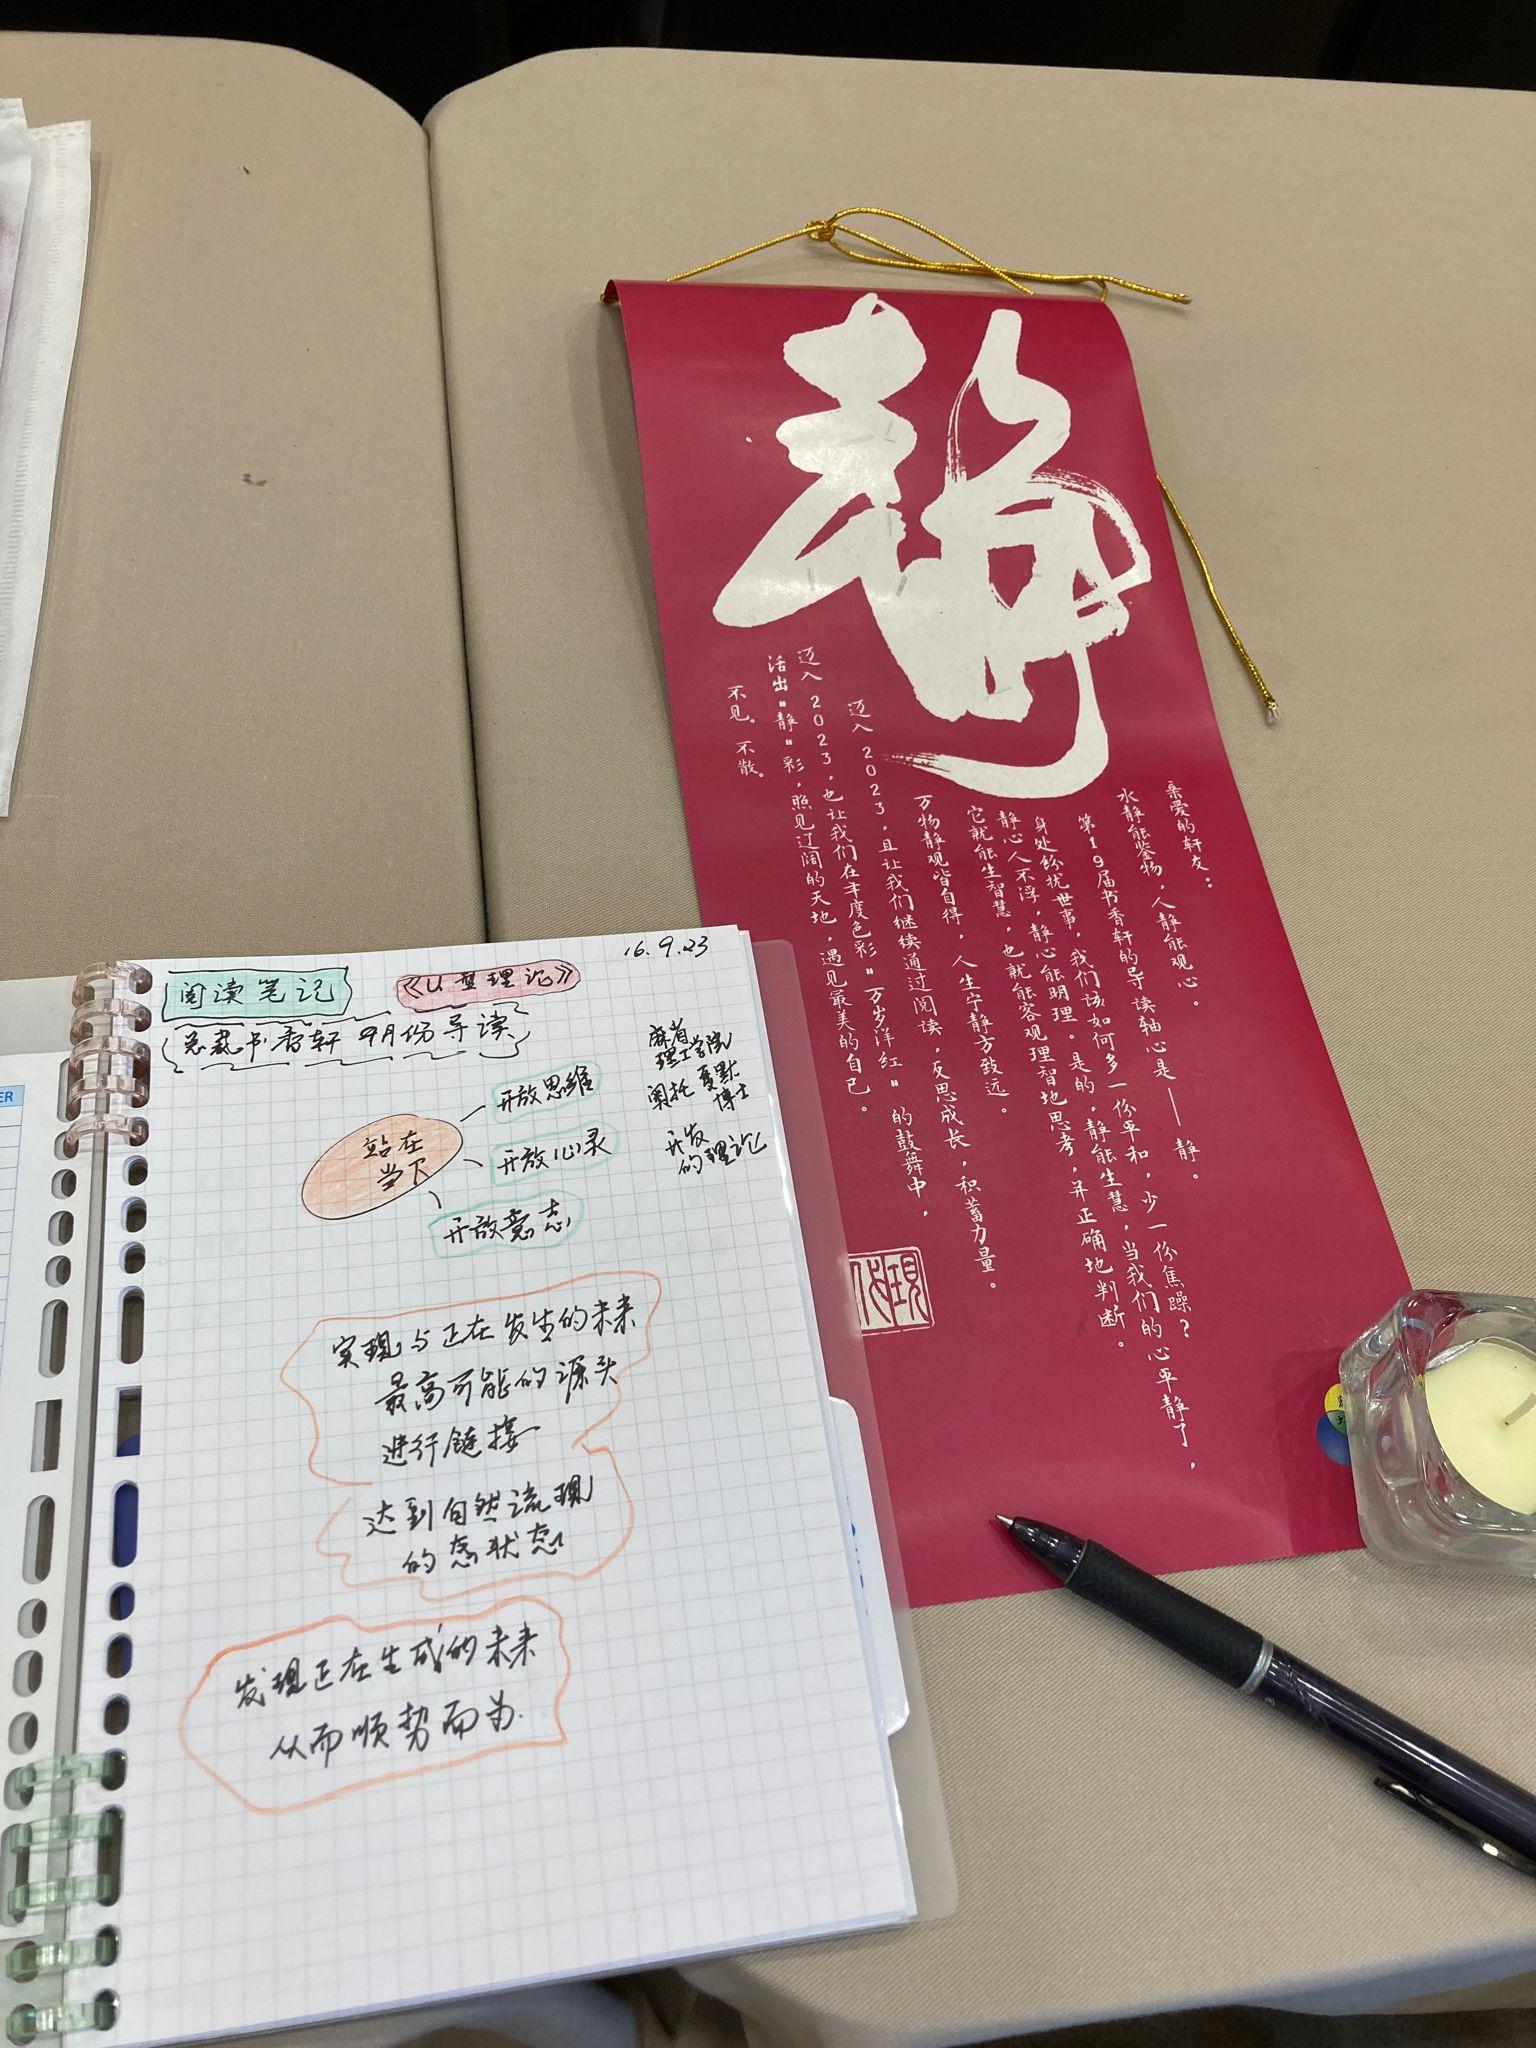 16.9.23
阅读笔记
《U型理论》
总裁书香轩 9月份导读
麻省
理工学院
奥托 夏默
博士
开发
的理论
站在
当下
开放思维
开放心灵
开放意志
实现与正在发生的未来
最高可能的源头
进行链接
达到自然流现
的态状态
发现正在生成的未来
从而顺势而为.
静
亲爱的轩友：
水静能鉴物，人静能观心。
第19届书香轩的导读轴心是——静。
身处纷扰世事，我们该如何多一份平和，少一份焦躁？
静心人不浮，静心能明理。是的，静能生慧，当我们的心平静了，
它就能生智慧，也就能客观理智地思考，并正确地判断。
万物静观皆自得，人生宁静方致远。
迈入2023，且让我们继续通过阅读，反思成长，积蓄力量。
迈入2023，也让我们在年度色彩“万岁洋红”的鼓舞中，
活出“静”彩，照见辽阔的天地，遇见最美的自己。
不见。不散。